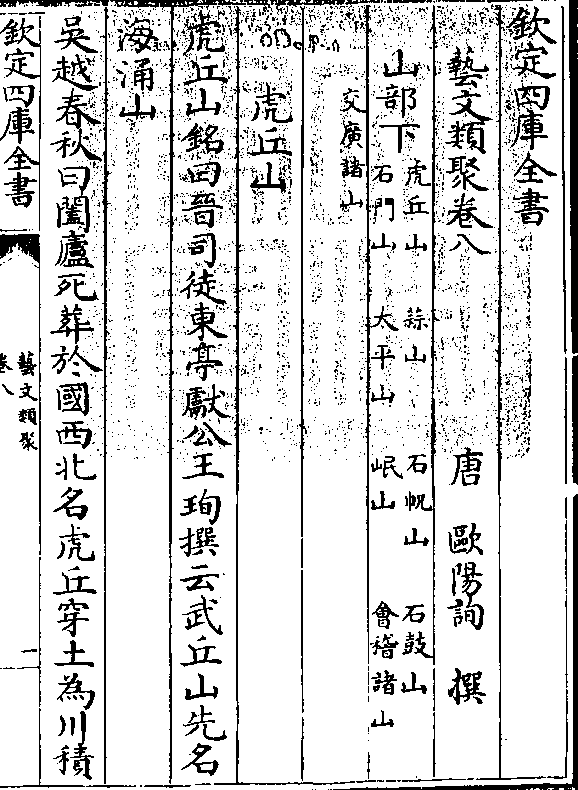 欽定四庫全書
藝文類聚卷八　唐　歐陽詢　撰
山部下　虎丘山　蒜山　石帆山　石鼓山
石門山　太平山　岷山　會稽諸山
交廣諸山
虎丘山
虎丘山銘曰晉司徒東亭獻公王珣撰云武丘山先名
海涌山
吳越春秋曰闔廬死葬於國西北名虎丘穿土為川積
欽定四庫全書
藝文類聚
卷八
一